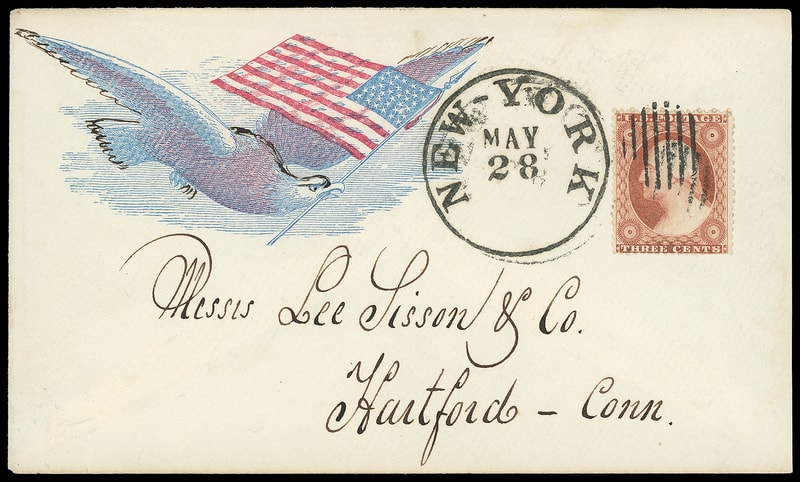 NEW-YORK
MAY
28
U.S. POSTAGE
THREE CENTS
Messrs Lee Sisson & Co.
Hartford – Conn.